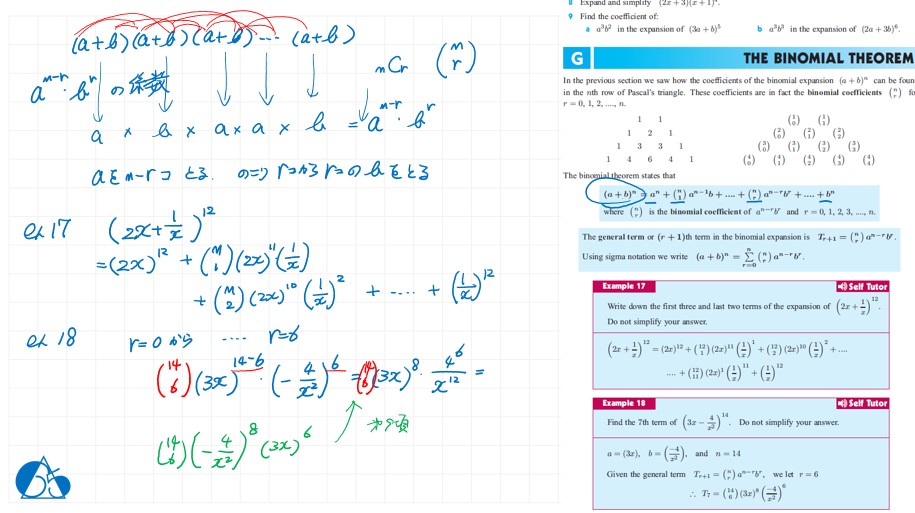 (a+b)(a+b)(a+b)…(a+b)
nCr (n r)
a^{n-r}・b^r の係数
a × b × a × a × b = a^{n-r}・b^r
aをn-rコとる. のこりrコからrコのbをとる
ex 17 (2x+1/x)^{12}
=(2x)^{12} + (n 1)(2x)^{11}(1/x)
+ (n 2)(2x)^{10}(1/x)^2 + ‥‥ + (1/x)^{12}
ex 18 r=0から ‥‥ r=6
(14 6)(3x)^{14-6}・(-4/x²)^6 = (14 6)(3x)^8・4^6/x^{12} =
(14 6)(-4/x²)^8(3x)^6
8 Expand and simplify (2x+3)(x+1)^4.
9 Find the coefficient of:
a a³b² in the expansion of (3a+b)^5 b a³b³ in the expansion of (2a+3b)^6.
G THE BINOMIAL THEOREM
In the previous section we saw how the coefficients of the binomial expansion (a+b)^n can be foun
in the nth row of Pascal's triangle. These coefficients are in fact the binomial coefficients (n r) fo
r = 0, 1, 2, ...., n.
1 1 (1 0) (1 1)
1 2 1 (2 0) (2 1) (2 2)
1 3 3 1 (3 0) (3 1) (3 2) (3 3)
1 4 6 4 1 (4 0) (4 1) (4 2) (4 3) (4 4)
The binomial theorem states that
(a+b)^n = a^n + (n 1) a^{n-1}b + .... + (n r) a^{n-r}b^r + .... + b^n
where (n r) is the binomial coefficient of a^{n-r}b^r and r = 0, 1, 2, 3, ...., n.
The general term or (r+1)th term in the binomial expansion is T_{r+1} = (n r) a^{n-r}b^r.
Using sigma notation we write (a+b)^n = Σ_{r=0}^{n} (n r) a^{n-r}b^r.
Example 17 Self Tutor
Write down the first three and last two terms of the expansion of (2x+1/x)^{12}.
Do not simplify your answer.
(2x+1/x)^{12} = (2x)^{12} + (12 1)(2x)^{11}(1/x)^1 + (12 2)(2x)^{10}(1/x)^2 + ....
.... + (12 11)(2x)^1(1/x)^{11} + (1/x)^{12}
Example 18 Self Tutor
Find the 7th term of (3x-4/x²)^{14}. Do not simplify your answer.
a = (3x), b = (-4/x²), and n = 14
Given the general term T_{r+1} = (n r) a^{n-r}b^r, we let r = 6
∴ T_7 = (14 6)(3x)^8(-4/x²)^6